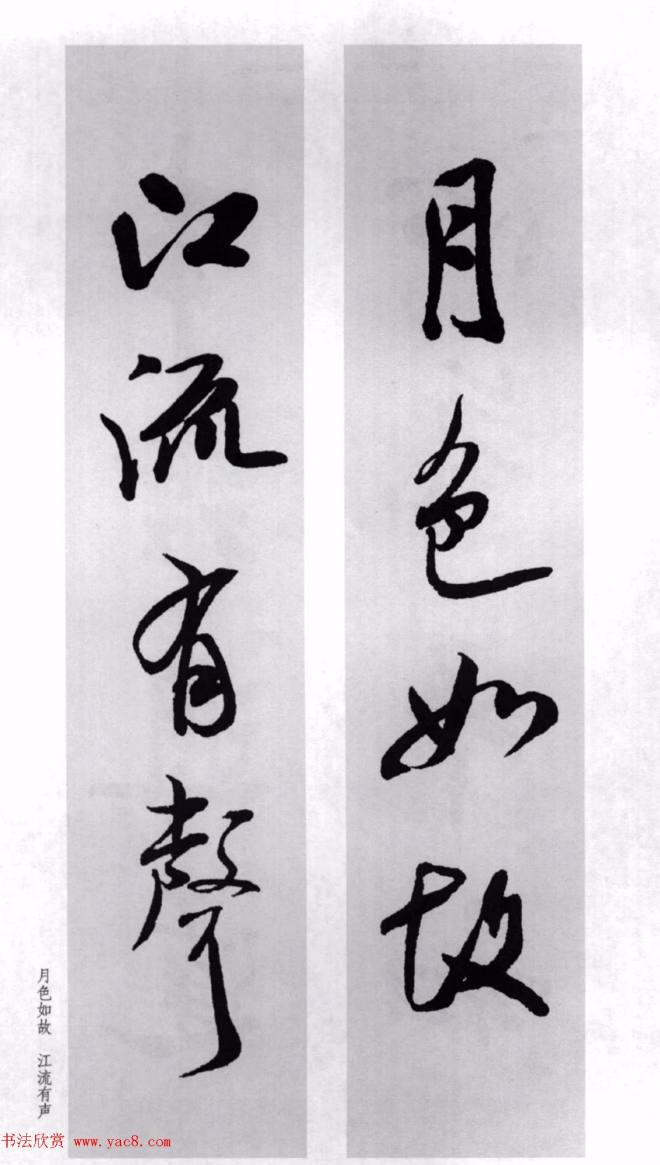 月色如故
江流有聲
月色如故 江流有声
书法欣赏 www.yac8.com